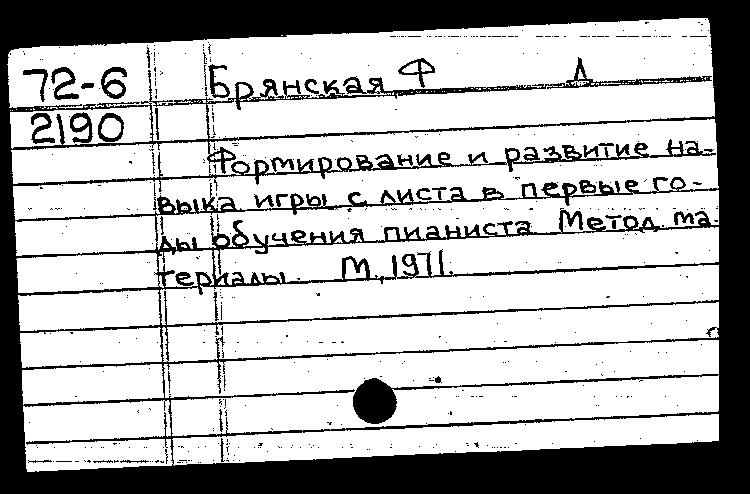 72-6 Брянская Ф Д
2190
Формирование и развитие на-
выка игры с листа в первые го-
ды обучения пианиста Метод. ма-
териалы. М., 1971.